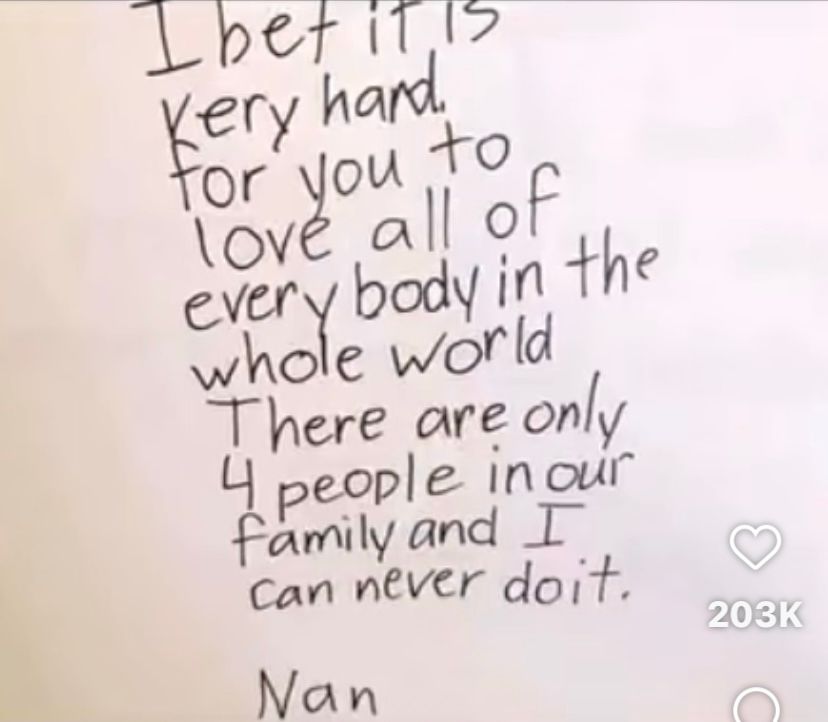 I bet it is
very hard.
for you to
love all of
every body in the
whole world
There are only
4 people in our
family and I
can never do it.
203K
Nan